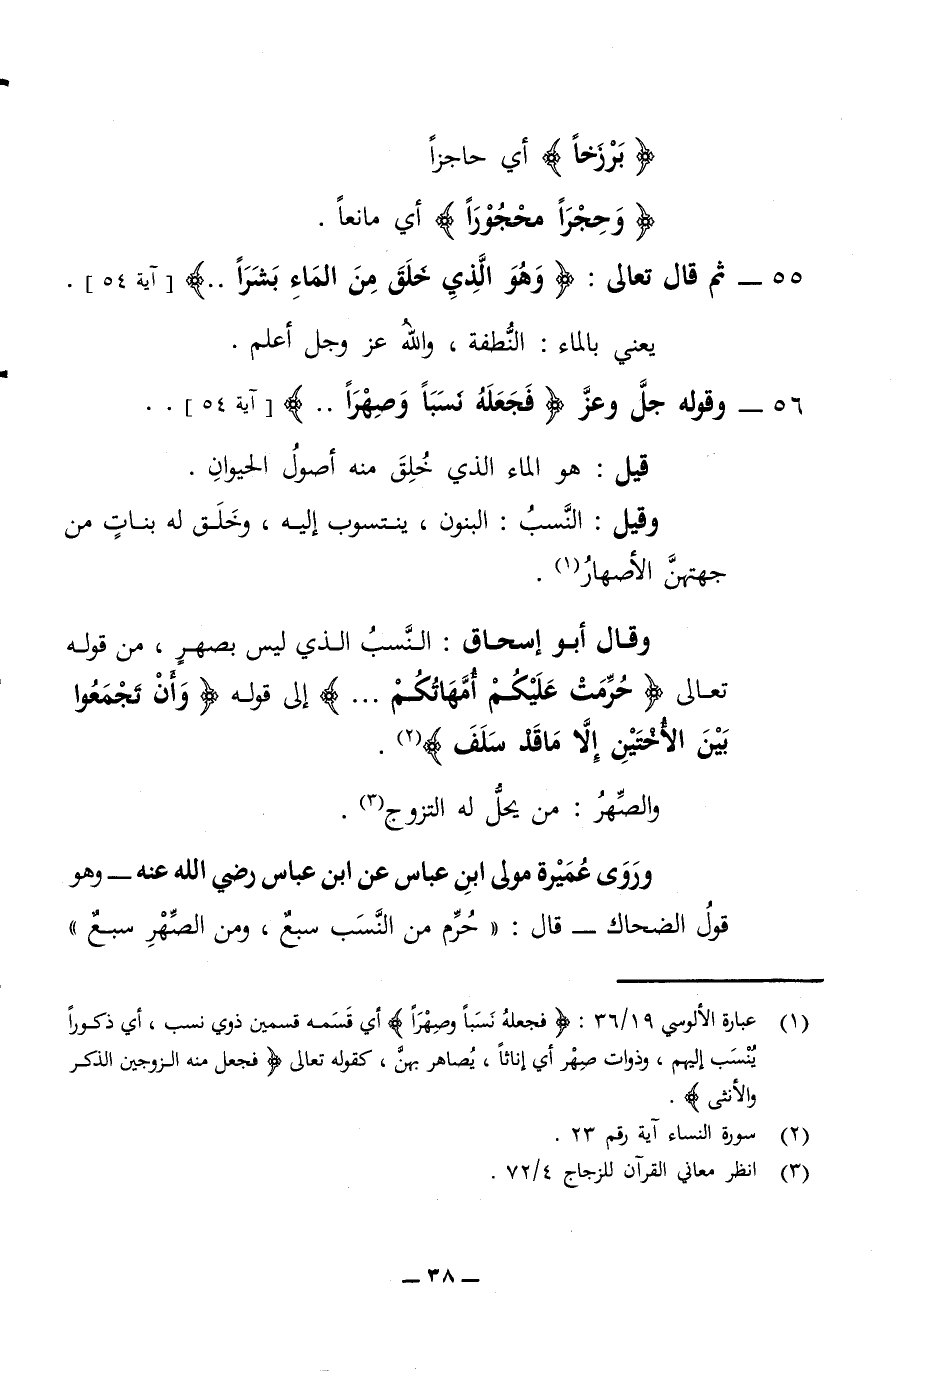 ﴿ بَرْزَخاً ﴾ أي حاجزاً
﴿ وَحِجْرَاً محْجُوْرَاً ﴾ أي مانعاً .
٥٥ ــ ثم قال تعالى : ﴿ وَهُوَ الَّذِي خَلَقَ مِنَ المَاءِ بَشَرَاً ..﴾ [ آية ٥٤ ] .
يعني بالماء : النُّطفة ، واللهُ عز وجل أعلم .
٥٦ ــ وقوله جلَّ وعزَّ ﴿ فَجَعَلَهُ نَسَبَاً وَصِهْرَاً .. ﴾ [ آية ٥٤ ] . .
قيل : هو الماء الذي خُلِقَ منه أصولُ الحيوانِ .
وقيل : النَّسبُ : البنون ، ينتسوب إليه ، وخَلَق له بناتٍ من
جهتهنَّ الأصهارُ(١) .
وقال أبو إسحاق : النَّسبُ الذي ليس بصهرٍ ، من قوله
تعالى ﴿ حُرِّمَتْ عَلَيْكُمْ أُمَّهَاتُكُمْ ... ﴾ إلى قوله ﴿ وَأَنْ تَجْمَعُوا
بَيْنَ الأُخْتَيْنِ إِلَّا مَاقَدْ سَلَفَ ﴾(٢) .
والصِّهرُ : من يحلُّ له التزوج(٣) .
ورَوَى عُمَيْرة مولى ابنِ عباس عن ابن عباس رضي الله عنه ــ وهو
قولُ الضحاك ــ قال : « حُرِّم من النَّسَب سبعٌ ، ومن الصِّهْرِ سبعٌ »
(١) عبارة الألوسي ٣٦/١٩ : ﴿ فجعلهُ نَسَباً وصِهْراً ﴾ أي قَسَمه قسمين ذوي نسب ، أي ذكوراً
يُنْسَب إليهم ، وذوات صِهْر أي إناثاً ، يُصاهر بهنَّ ، كقوله تعالى ﴿ فجعل منه الزوجين الذكر
والأنثى ﴾ .
(٢) سورة النساء آية رقم ٢٣ .
(٣) انظر معاني القرآن للزجاج ٧٢/٤ .
ــ ٣٨ ــ